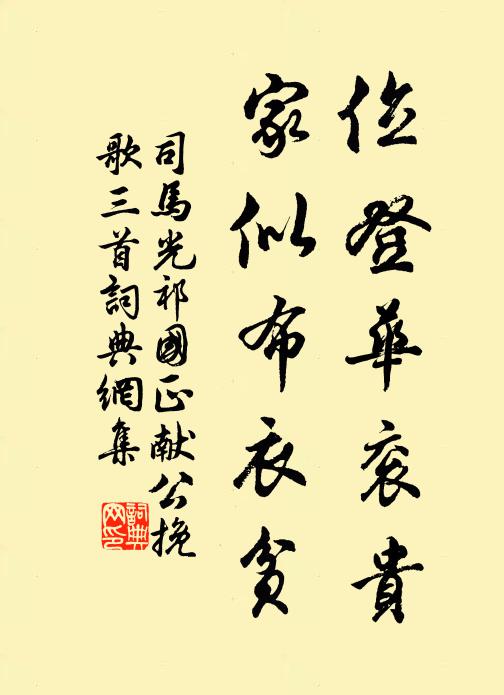 位登華衮貴
家似布衣貧
司馬光祁國正献公挽
歌三首詞典網集
詞典
网印